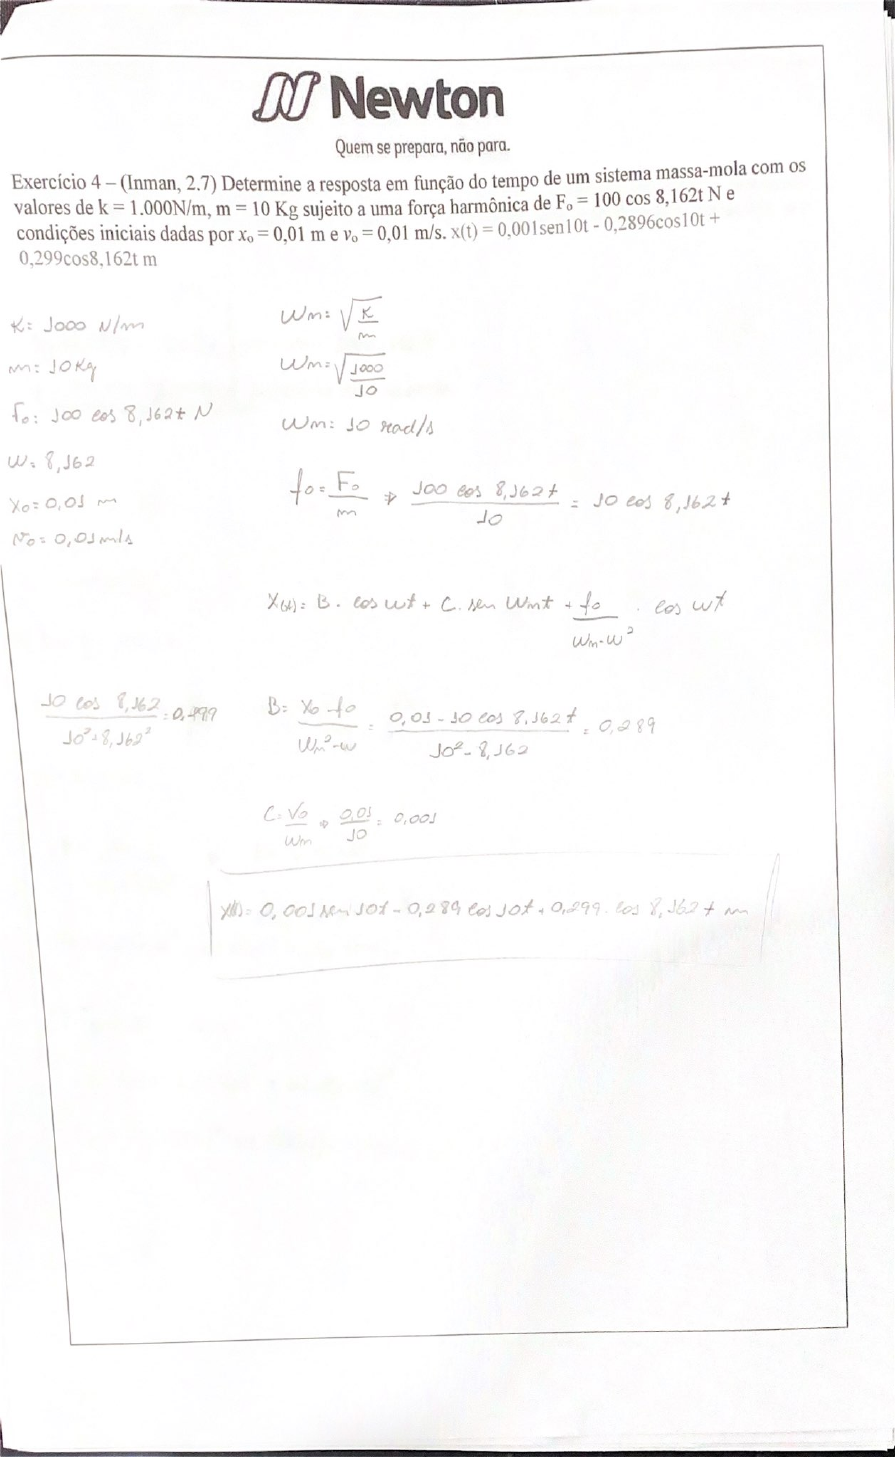 Newton
Quem se prepara, não para.
Exercício 4 – (Inman, 2.7) Determine a resposta em função do tempo de um sistema massa-mola com os
valores de k = 1.000N/m, m = 10 Kg sujeito a uma força harmônica de Fₒ = 100 cos 8,162t N e
condições iniciais dadas por xₒ = 0,01 m e vₒ = 0,01 m/s. x(t) = 0,001sen10t - 0,2896cos10t +
0,299cos8,162t m
K: 1000 N/m
m: 10Kg
fo: 100 cos 8,162t N
W: 8,162
Xo = 0,01 m
No = 0,01 m/s
Wm = √K/m
Wm = √1000/10
Wm: 10 rad/s
fo = Fo/m ⇒ 100 cos 8,162t / 10 = 10 cos 8,162t
X(t) = B . cos wt + C. sen Wmt + fo / Wm-w² . cos wt
10 cos 8,162 / 10²-8,162² = 0,299
B = Xo - fo / Wm²-w = 0,01 - 10 cos 8,162t / 10² - 8,162 = 0,289
C = Vo / Wm ⇒ 0,01 / 10 = 0,001
X(t) = 0,001 sen 10t - 0,289 cos 10t + 0,299 . cos 8,162t m